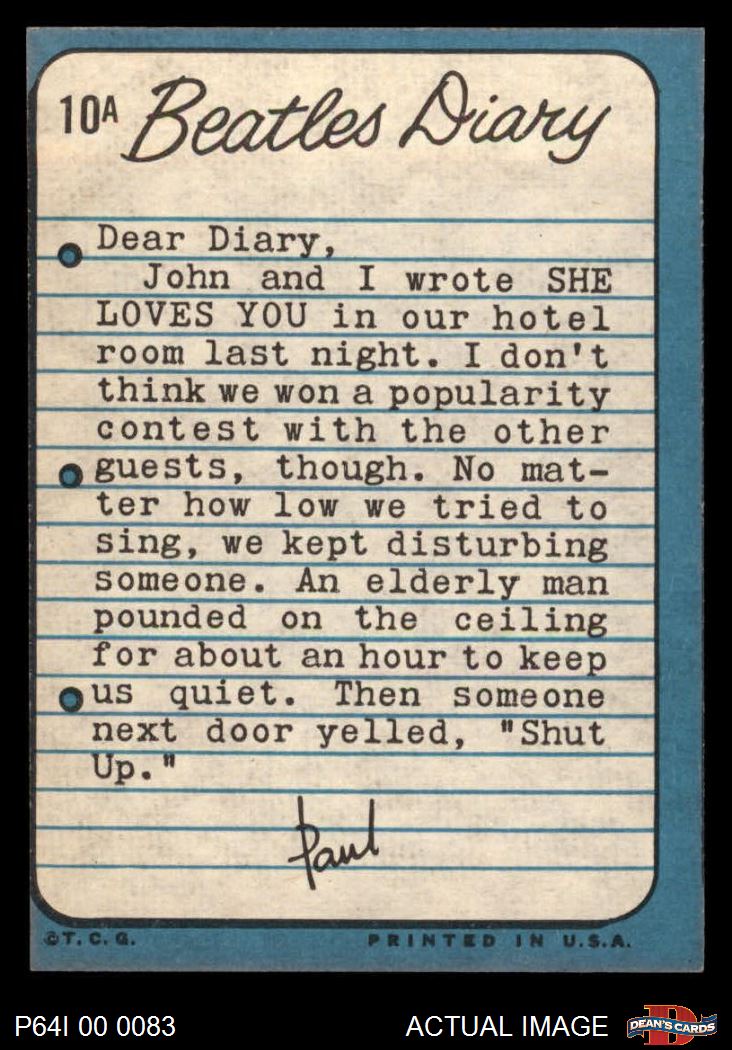 10A Beatles Diary
Dear Diary,
John and I wrote SHE
LOVES YOU in our hotel
room last night. I don't
think we won a popularity
contest with the other
guests, though. No mat-
ter how low we tried to
sing, we kept disturbing
someone. An elderly man
pounded on the ceiling
for about an hour to keep
us quiet. Then someone
next door yelled, "Shut
Up."
Paul
©T. C. G. PRINTED IN U.S.A.
P64I 00 0083 ACTUAL IMAGE D DEAN'S CARDS